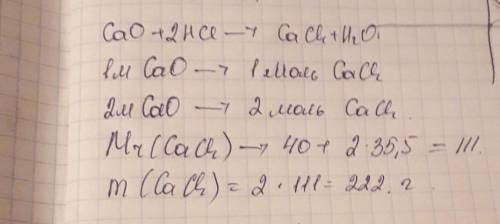 CaO + 2HCl → CaCl₂ + H₂O.
1м CaO → 1 моль CaCl₂
2м CaO → 2 моль CaCl₂.
Mr (CaCl₂) → 40 + 2·35,5 = 111.
m (CaCl₂) = 2 · 111 = 222. г